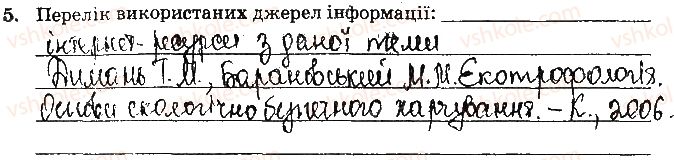 5. Перелік використаних джерел інформації:
інтернет-ресурси з даної теми
Димань Т.М., Барановський М.М. Єкотрофологія.
Основи екологічно безпечного харчування. – К., 2006.